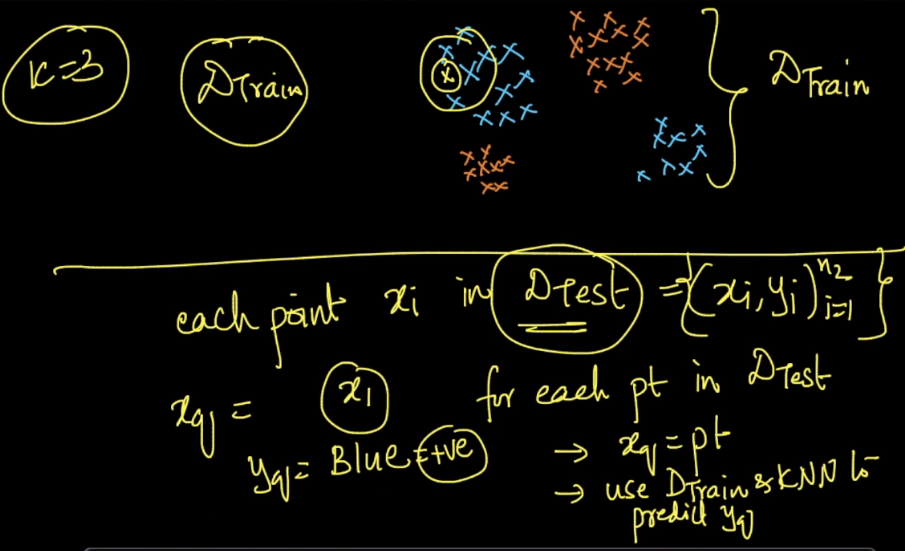 K=3 DTrain DTrain
each point xi in DTest = {(xi, yi)ⁿ²i=1}
xq = x1 for each pt in DTest
yq = Blue = +ve → xq = pt
→ use DTrain & KNN to
predict yq